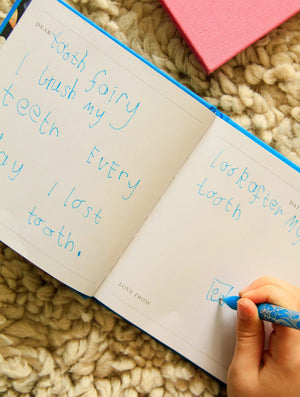 DEAR
tooth fairy
I brush my
teeth Every
day I lost
tooth.
DAT
Look after my
tooth
LOVE FROM
e